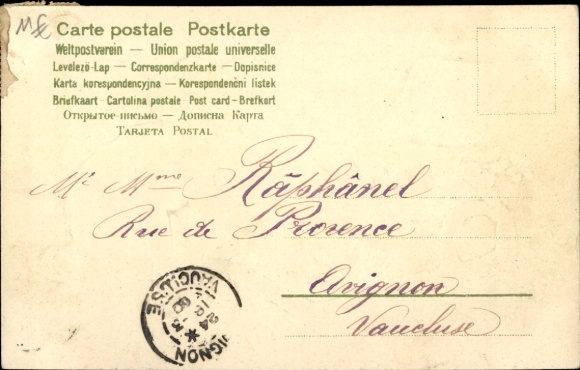 Carte postale Postkarte
Weltpostverein — Union postale universelle
Levelező-Lap — Correspondenzkarte — Dopisnice
Karta korespondencyjna — Korespondenční lístek
Briefkaart - Cartolina postale Post card - Brefkort
Открытое письмо — Дописна Карта
TARJETA POSTAL
Mr Mme Râphânel
Rue de Provence
Avignon
Vaucluse
VAUCLUSE
24